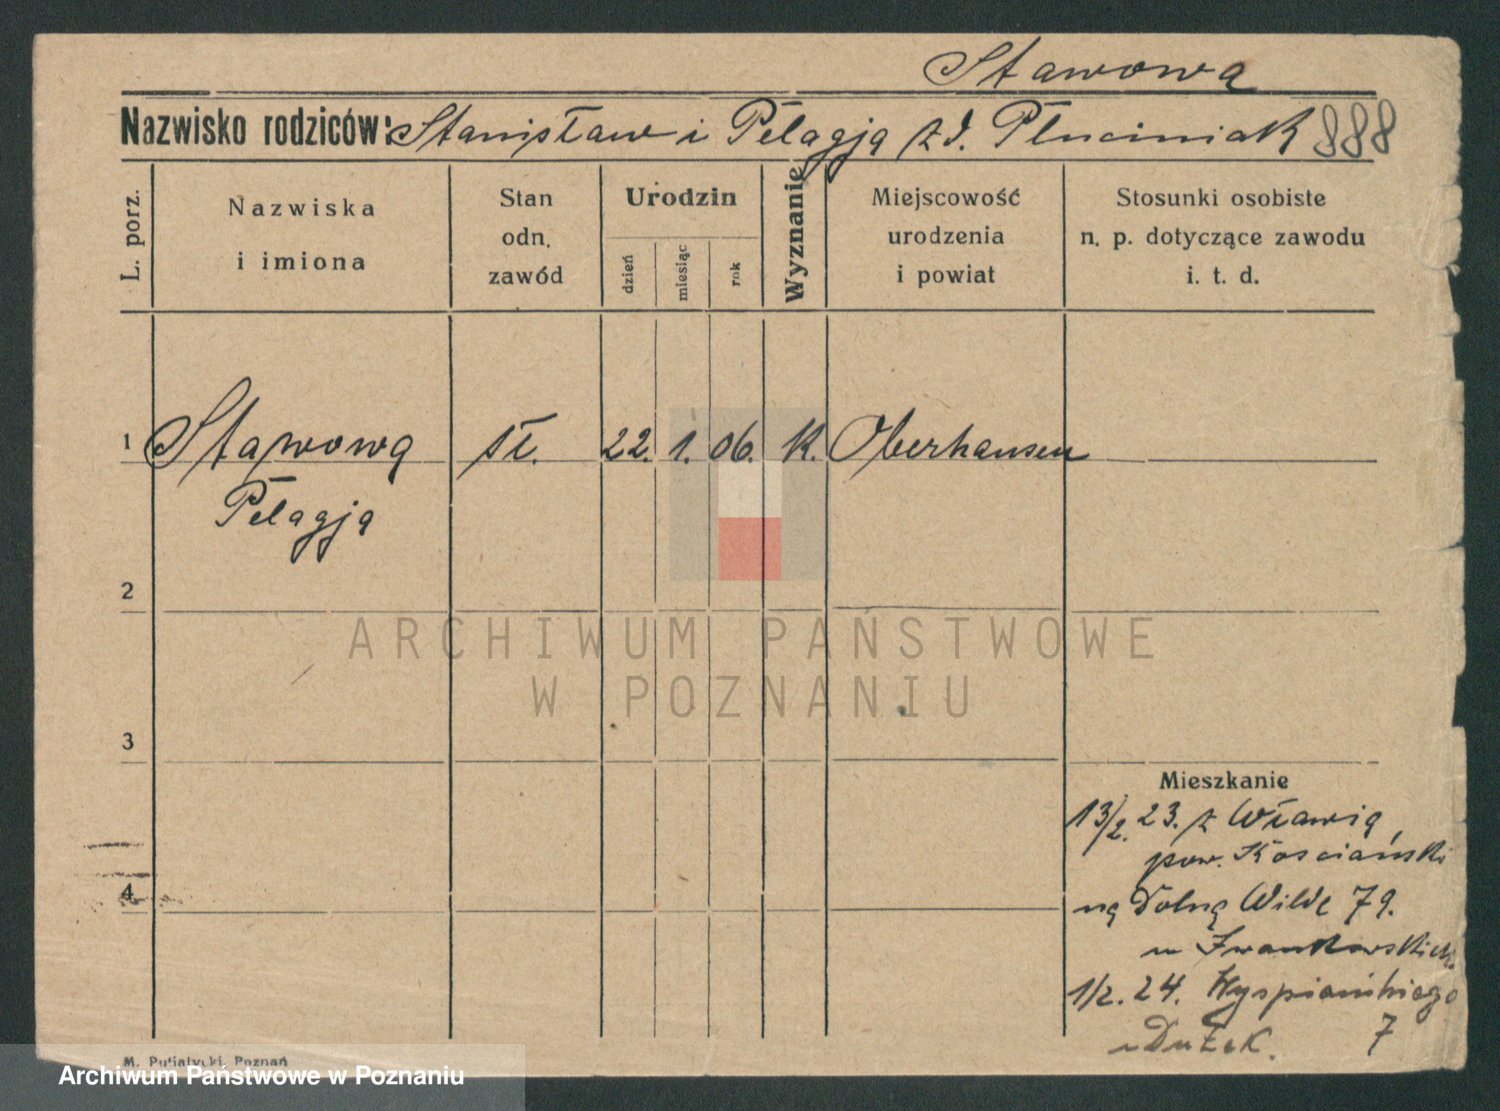 Stawowa
Nazwisko rodziców: Stanisław i Pelagja z d. Płuciniak 888
L. porz.
Nazwiska
i imiona
Stan
odn.
zawód
Urodzin
dzień
miesiąc
rok
Wyznanie
Miejscowość
urodzenia
i powiat
Stosunki osobiste
n. p. dotyczące zawodu
i. t. d.
1 Stawowa sł. 22. 1. 06. K. Oberhausen
Pelagja
2
3
4
Mieszkanie
13/2. 23. z
pow. Kościański
na Dolną Wildę 79.
u
1/2. 24. Wyspiańskiego
7
M. Putiatycki, Poznań
ARCHIWUM PAŃSTWOWE
W POZNANIU
Archiwum Państwowe w Poznaniu